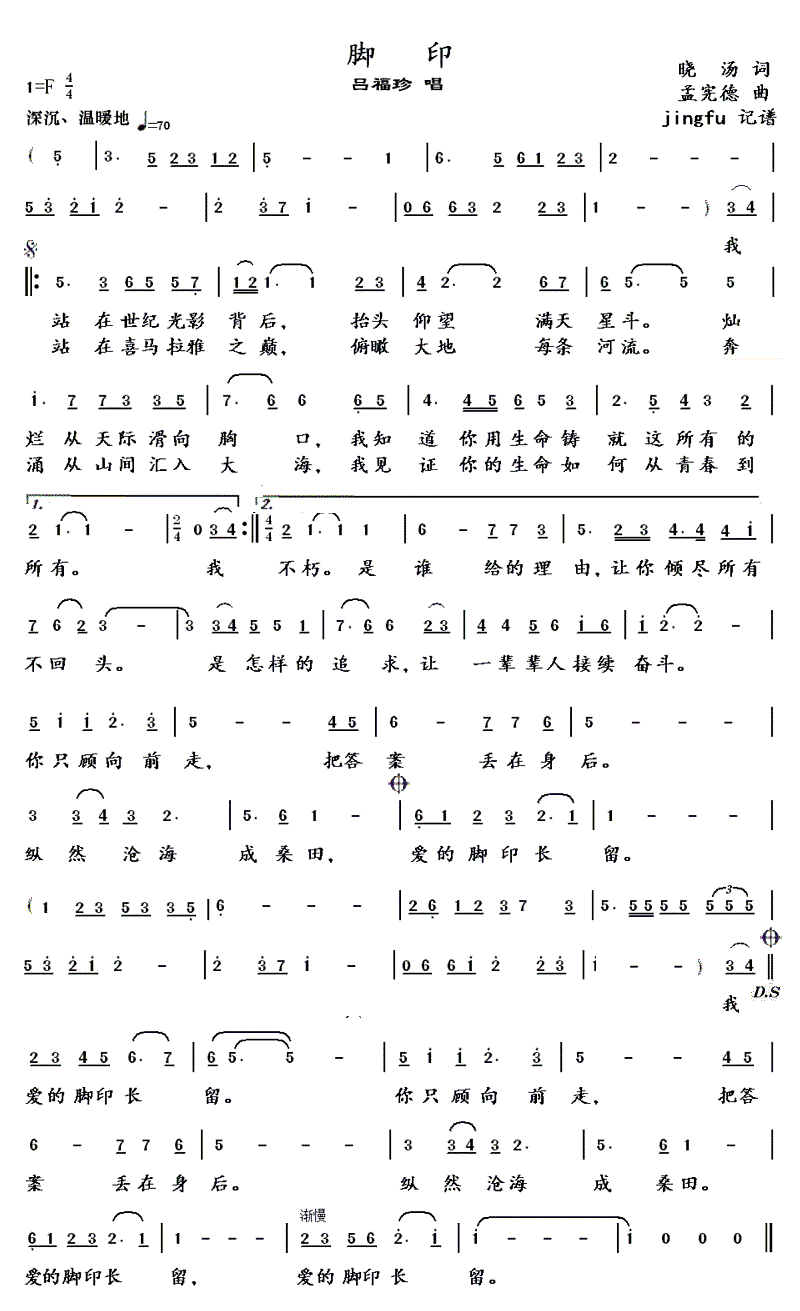 脚 印
吕福珍 唱
晓 汤 词
孟宪德 曲
jingfu 记谱
1=F 4/4
深沉、温暖地 ♩=70
( 5 | 3· 5 2 3 1 2 | 5 - - 1 | 6· 5 6 1 2 3 |
5 3 2 1 2 - | 2 3 7 1 - | 0 6 6 3 2 2 3 | 1 - - ) 3 4 |
我
5· 3 6 5 5 7 | 1 2 1· 1 3 3 | 4 2· 2 6 7 | 6 5· 5 5 |
站 在 世纪 光影 背 后, 抬头 仰望 满天 星斗。 灿
站 在 喜马 拉雅 之 巅, 俯瞰 大地 每条 河流。 奔
1· 7 7 3 3 5 | 7· 6 6 6 5 | 4· 4 5 6 5 3 | 2· 5 4 3 2 |
烂 从 天际 滑向 胸 口, 我知 道 你用 生命 铸 就 这所有 的
涌 从 山间 汇入 大 海, 我见 证 你的 生命 如 何 从青春 到
1. 2.
2 1· 1 - | 2/4 0 3 4 :| 4/4 2 1· 1 1 | 6 - 7 7 3 | 5· 2 3 4· 4 | 4 4 1 |
所有。 我 不朽。是 谁 给的 理 由,让你 倾尽所有
7 6 2 3 - | 3 3 4 5 5 1 | 7· 6 6 2 3 | 4 4 5 6 1 6 | 2 2· 2 - |
不回 头。 是 怎样的 追 求,让 一辈辈人接续 奋斗。
5 1 1 2· 3 | 5 - - 4 5 | 6 - 7 7 6 | 5 - - - |
你只顾向 前 走, 把答 案 丢在身 后。
3 3 4 3 2· | 5· 6 1 - | 6 1 2 3 2· 1 | 1 - - - |
纵 然 沧海 成 桑田, 爱的脚印长 留。
( 1 2 3 5 3 3 5 | 6 - - - | 2 6 1 2 3 7 3 | 5· 5 5 5 5 5 5 5 |
3
5 3 2 1 2 - | 2 3 7 1 - | 0 6 6 1 2 2 3 | 1 - - ) 3 4 ‖
我 D.S
2 3 4 5 6· 7 | 6 5· 5 - | 5 1 1 2· 3 | 5 - - 4 5 |
爱的脚印长 留。 你只顾向 前 走, 把答
6 - 7 7 6 | 5 - - - | 3 3 4 3 2· | 5· 6 1 - |
案 丢在身 后。 纵 然 沧海 成 桑田。
渐慢
6 1 2 3 2· 1 | 1 - - - | 2 3 5 6 2· 1 | 1 - - - | 1 0 0 0 ‖
爱的脚印长 留, 爱的脚印长 留。